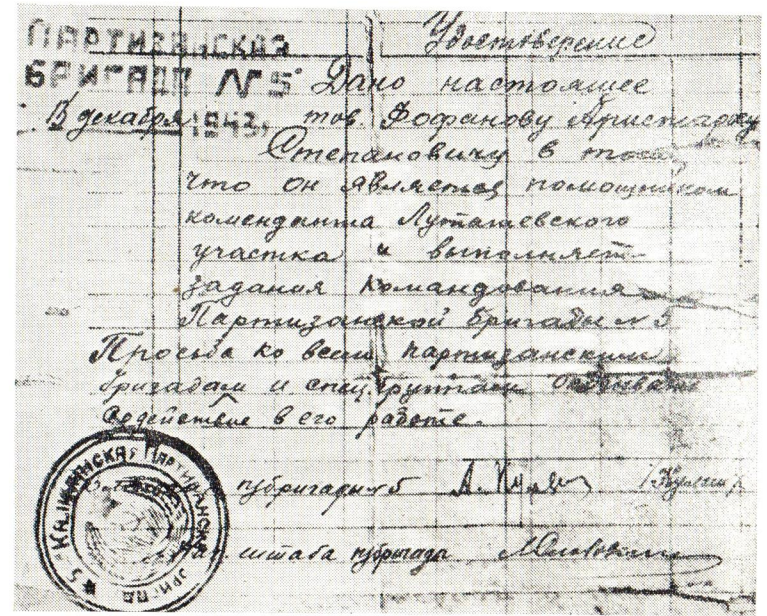 ПАРТИЗАНСКАЯ
БРИГАДА № 5
15 декабря 1943г.
Удостоверение
Дано настоящее
тов. Фофанову Аристарху
Степановичу в том,
что он является помощником
коменданта Луташевского
участка и выполняет
задания Командования
Партизанской бригады № 5
Просьба ко всем партизанским
бригадам и спец.группам оказывать
содействие в его работе.
п/бригады № 5
штаба п/бригады
№ 5 - КАЛИНИНСКАЯ ПАРТИЗАНСКАЯ БРИГАДА